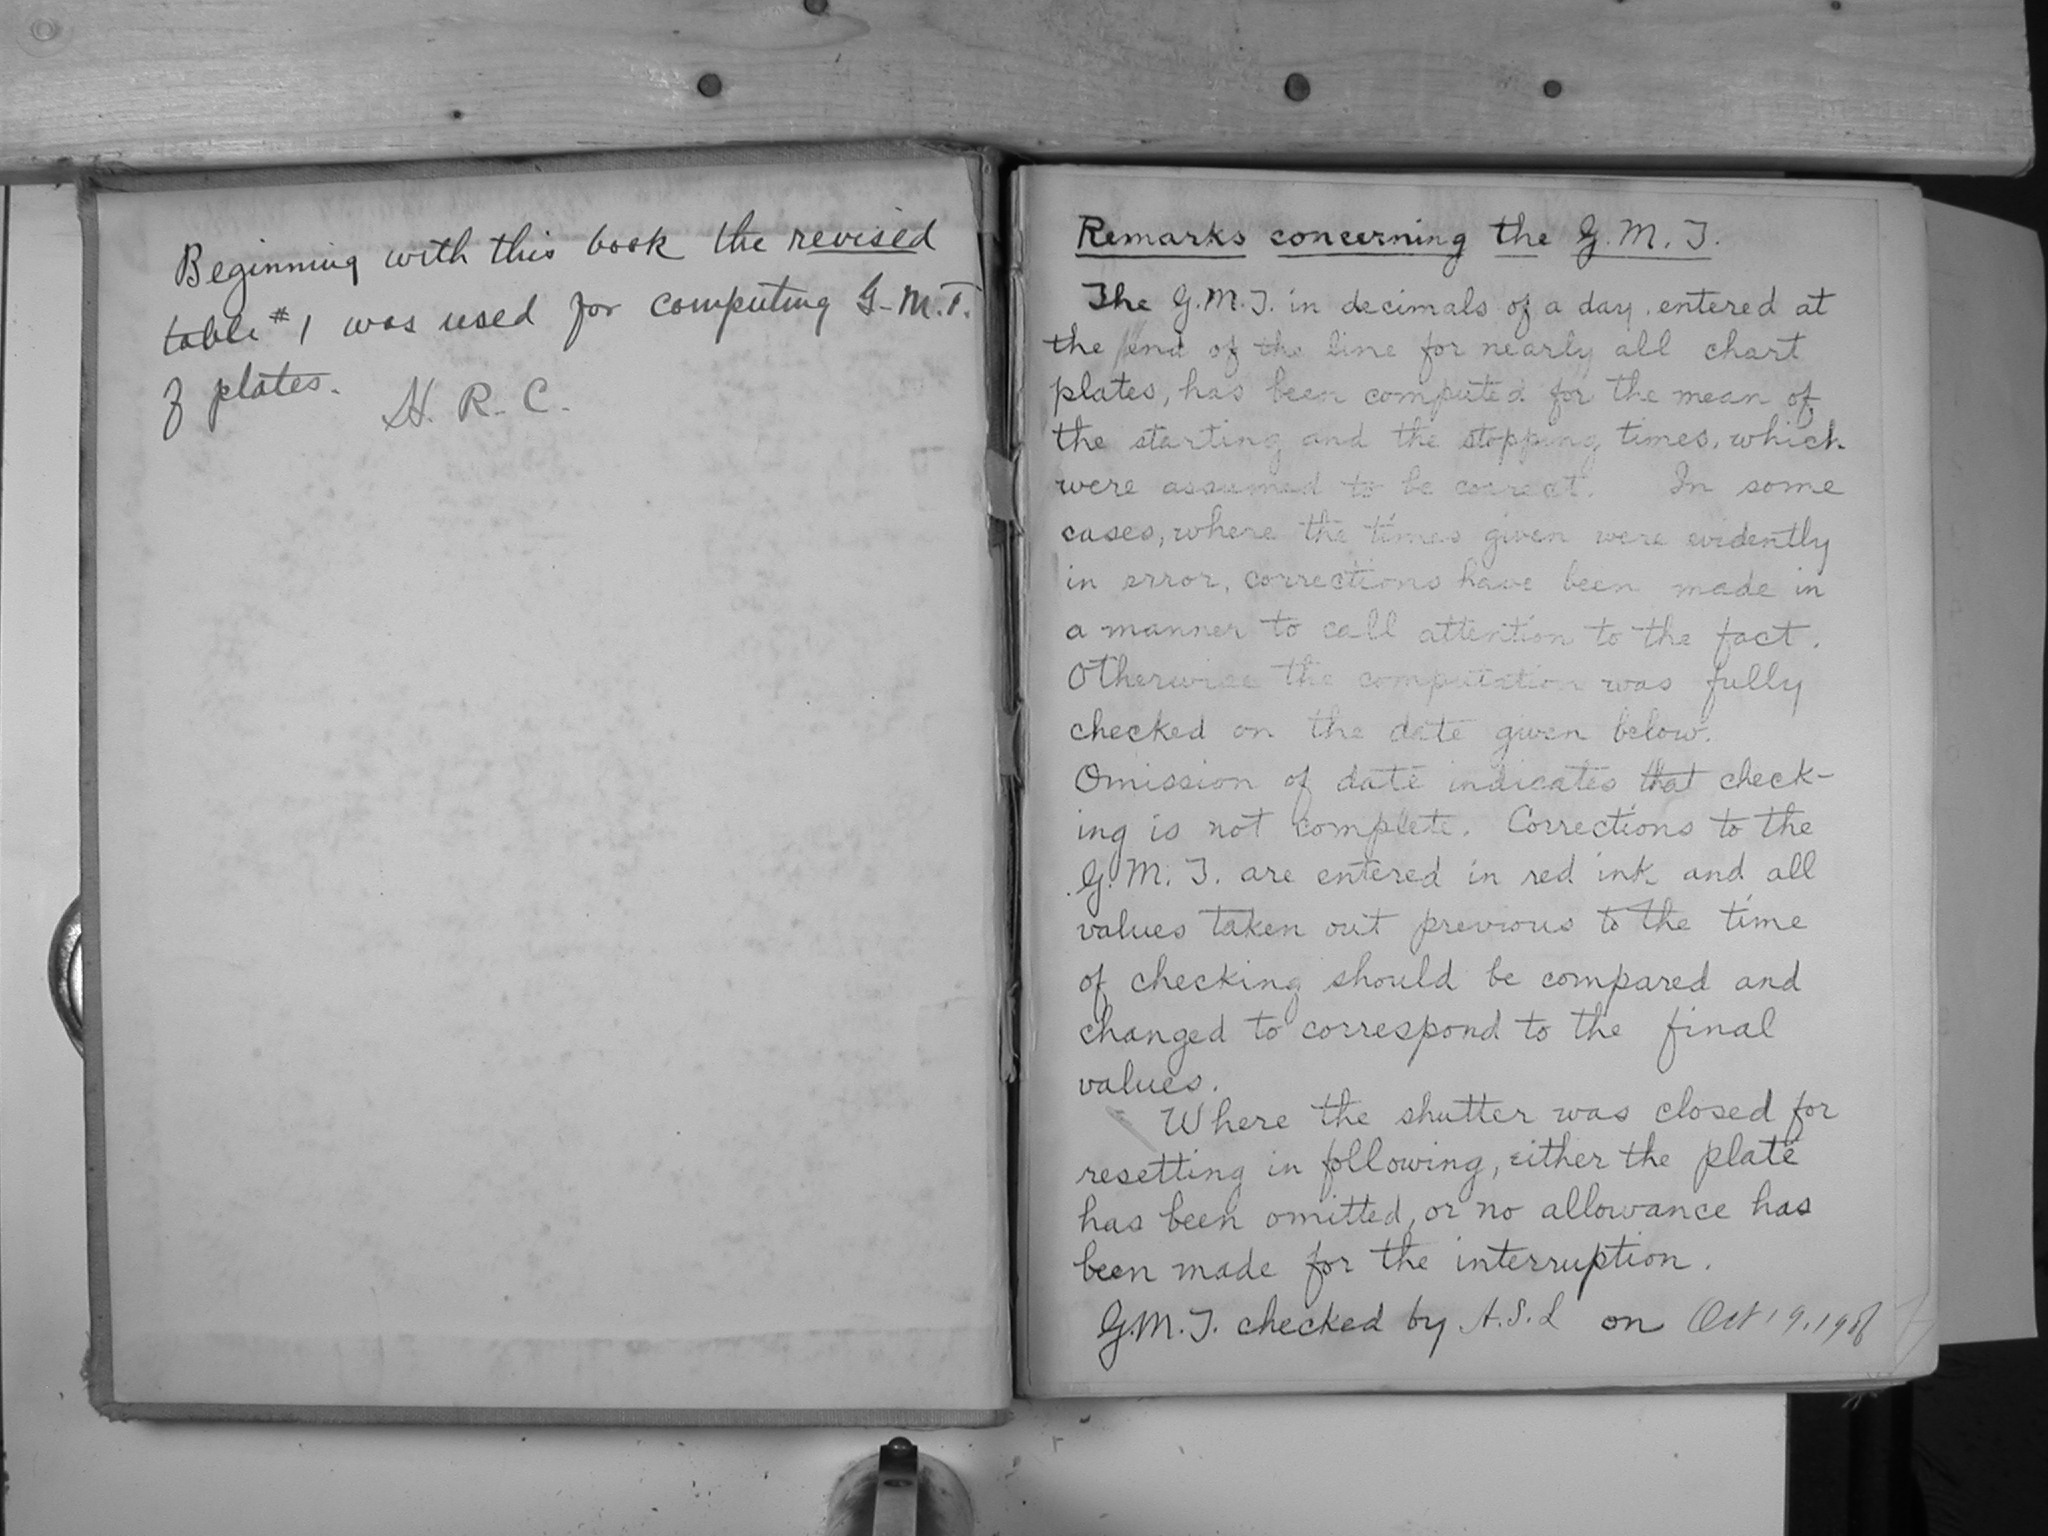 Beginning with this book the revised
table #1 was used for computing G.M.T.
of plates. H. R. C.
Remarks concerning the G.M.T.
The G.M.T. in decimals of a day, entered at
the end of the line for nearly all chart
plates, has been computed for the mean of
the starting and the stopping times, which
were assumed to be correct. In some
cases, where the times given were evidently
in error, corrections have been made in
a manner to call attention to the fact.
Otherwise the computation was fully
checked on the date given below.
Omission of date indicates that check-
ing is not complete. Corrections to the
G.M.T. are entered in red ink and all
values taken out previous to the time
of checking should be compared and
changed to correspond to the final
values.
Where the shutter was closed for
resetting in following, either the plate
has been omitted, or no allowance has
been made for the interruption.
G.M.T. checked by A.S.L on Oct 19,